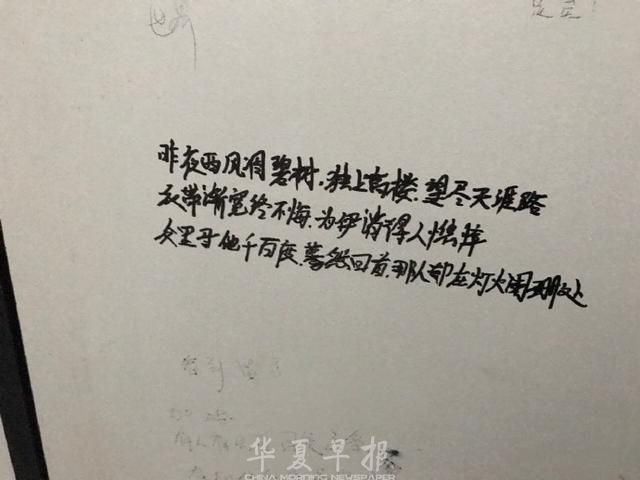 昨夜西风凋碧树.独上高楼.望尽天涯路
衣带渐宽终不悔.为伊消得人憔悴
众里寻他千百度.蓦然回首.那人却在灯火阑珊处
华夏早报
CHINA MORNING NEWSPAPER